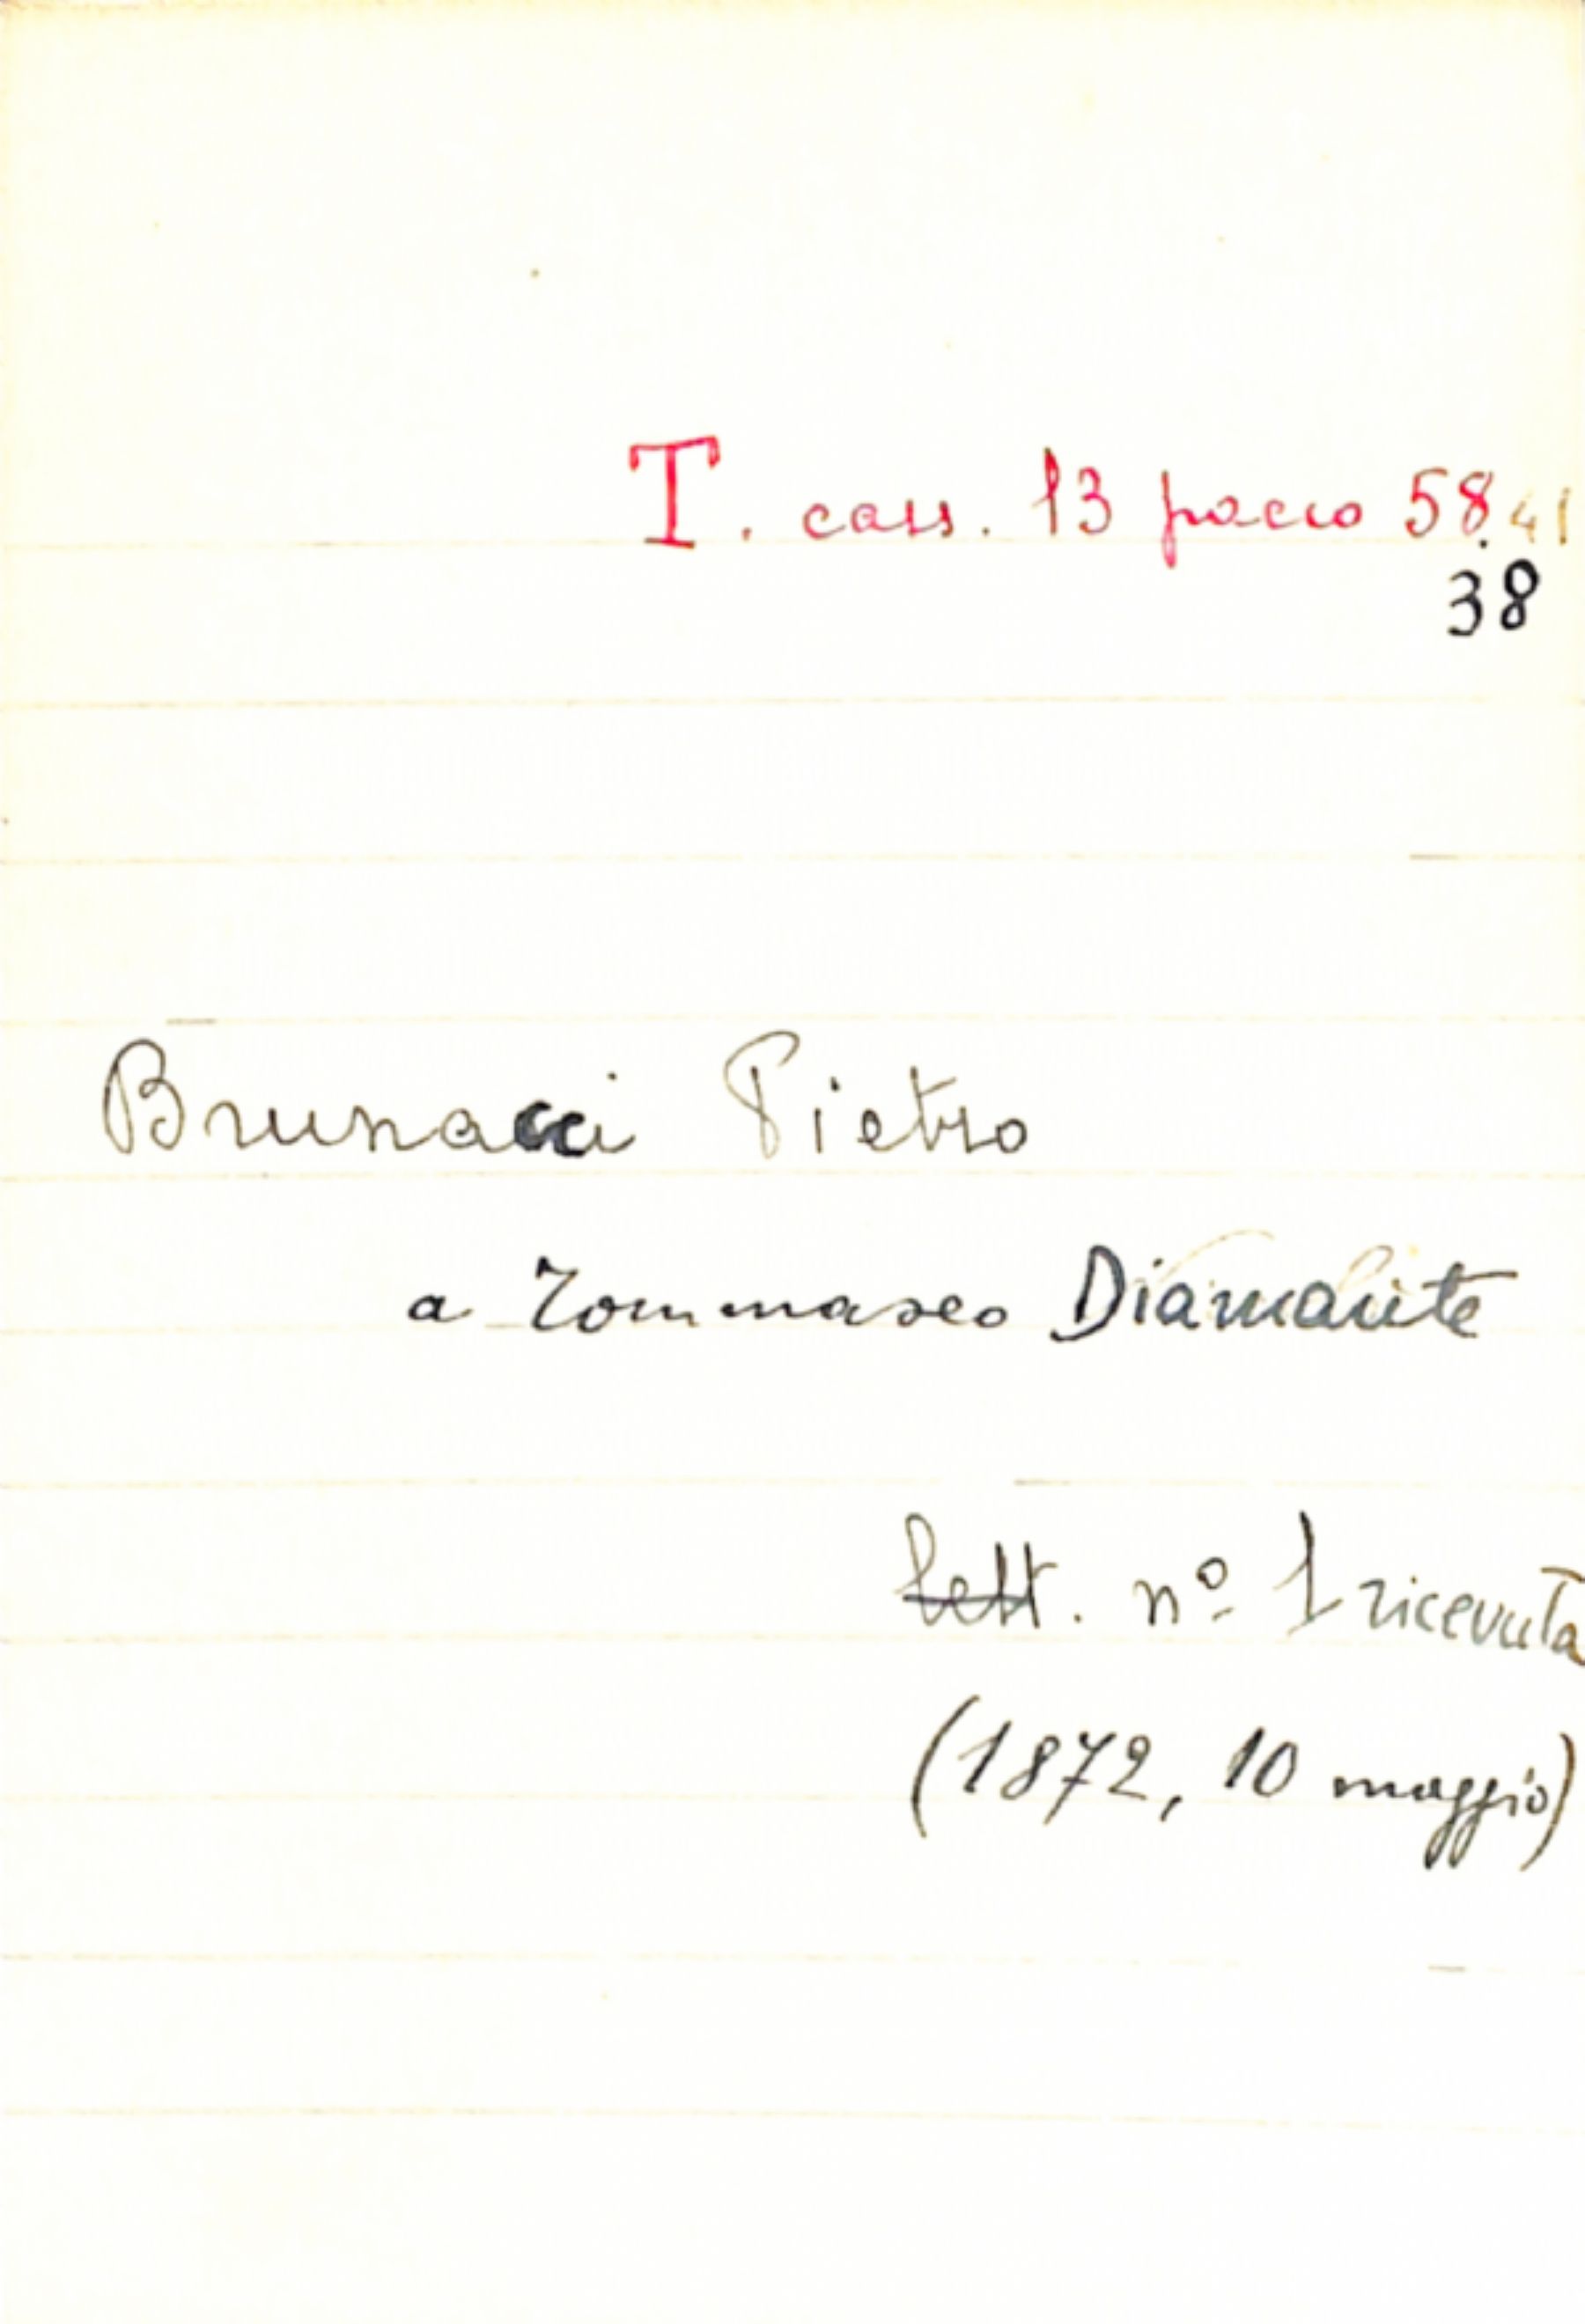 T. cass. 13 pacco 58.41
38
Brunacci Pietro
a Tommaseo Diamante
Lett. nº 1 ricevuta
(1872, 10 maggio)